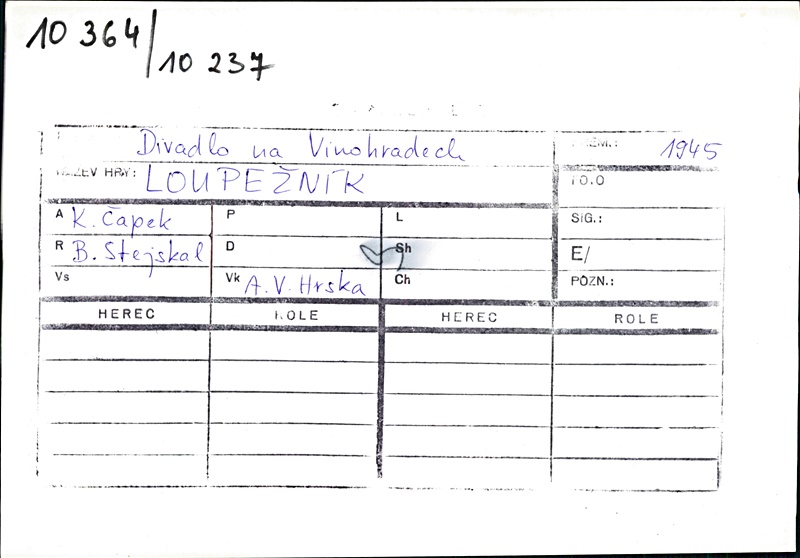 10 364/
10 237
Divadlo na Vinohradech
1945
NÁZEV HRY: LOUPEŽNÍK
A K. Čapek
P
L
SIG.:
R B. Stejskal
D
Sh
E/
Vs
Vk A. V. Hrska
Ch
POZN.:
HEREC ROLE HEREC ROLE